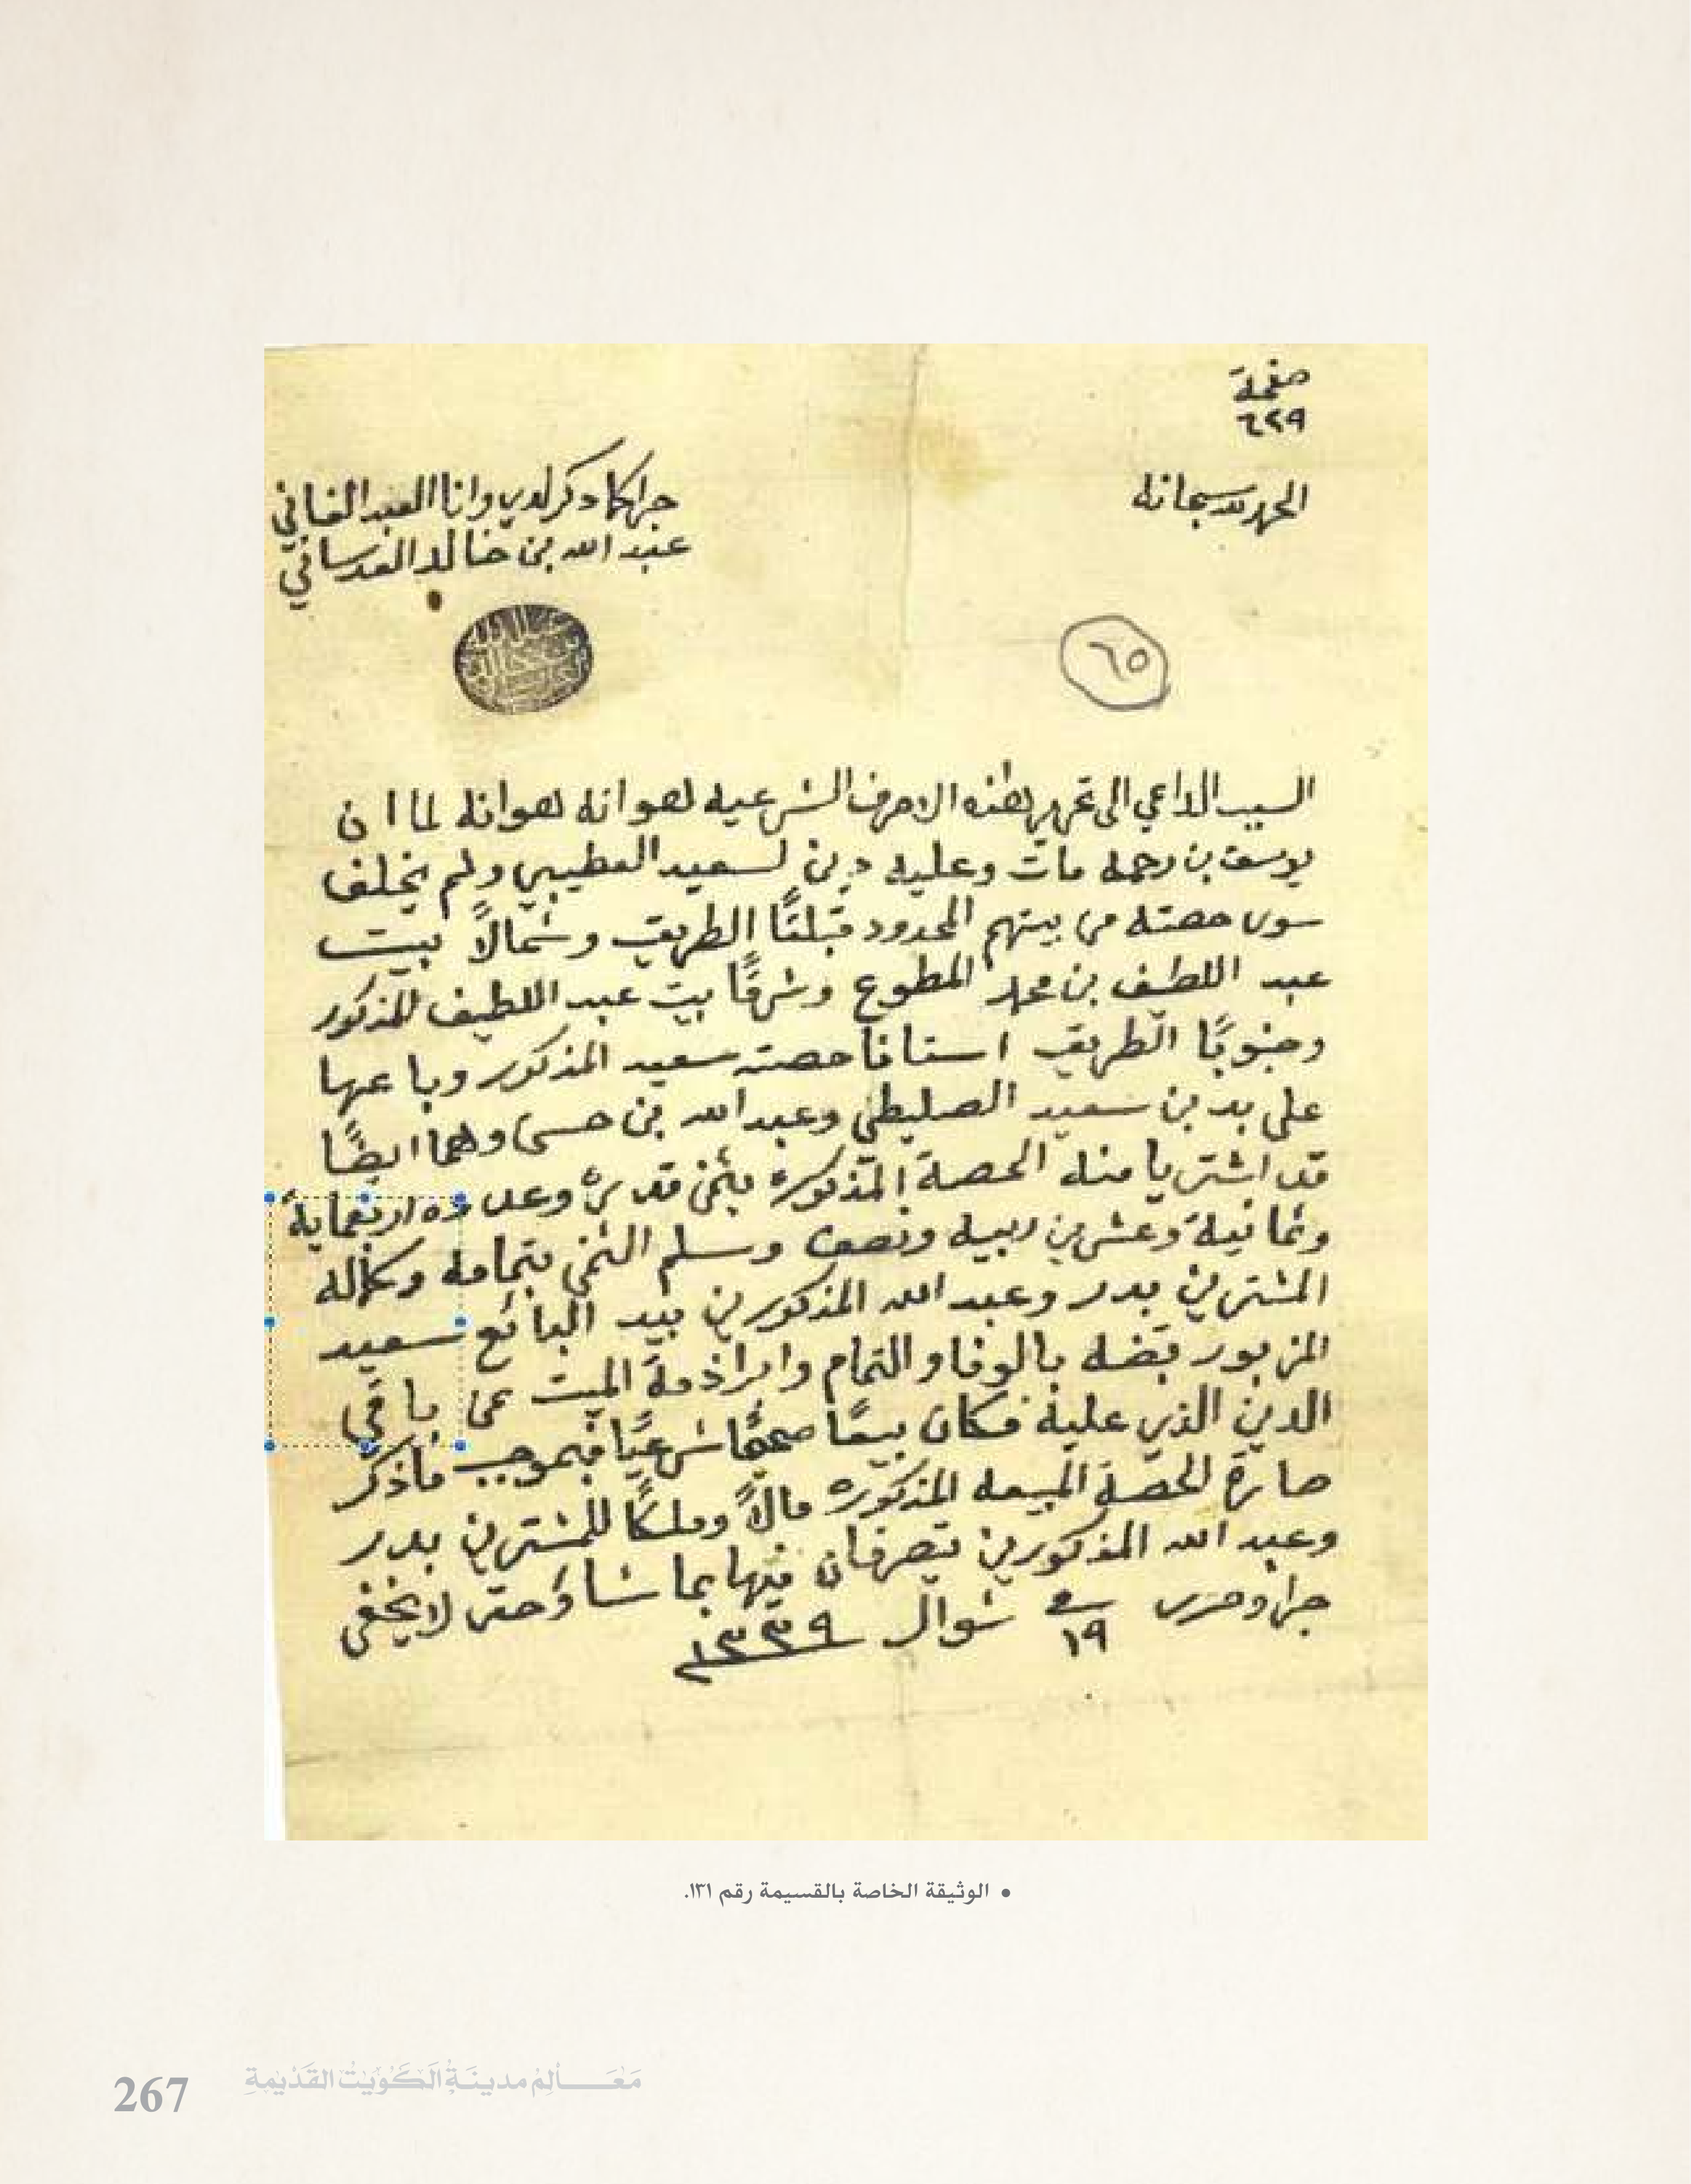 صفحة
٦٢٩
الحمد لله سبحانه
جرا كما ذكر لدي وانا العبد الفاني
عبد الله بن خالد العدساني
٦٥
السبب الداعي الى تحرير هذه الاحرف الشرعيه هو انه هو انه لما ان
يوسف بن رحمه مات وعليه دين لسعيد القطيبي ولم يخلف
سوى حصته من بيتهم المحدود قبلتًا الطريق وشمالاً بيت
عبد اللطيف بن محمد المطوع وشرقًا بيت عبد اللطيف المذكور
وجنوبًا الطريق استافا حصته سعيد المذكور وباعها
على بدر بن سعيد الصليطي وعبد الله بن حسن وهما ايضًا
قد اشتريا منه الحصة المذكوره بثمن قدره وعدده اربعماية
وثمانية وعشرين ربيه ونصف وسلم الثمن بتمامه وكماله
المشترين بدر وعبد الله المذكورين بيد البائع سعيد
المزبور قبضه بالوفا والتمام وابرا ذمة الميت عن باقي
الدين الذي عليه فكان بيعًا صحيحًا شرعيًا فبموجب ماذكر
صارة الحصة المبيعه المذكوره مالاً وملكًا للمشترين بدر
وعبد الله المذكورين يتصرفان فيها بما شاءا حتى لا يخفى
جرا وحرر في ١٩ شوال ١٣٣٩
• الوثيقة الخاصة بالقسيمة رقم ١٣١.
مَعَالِمْ مدينَةُ الْكُوَيْتُ القَدْيْمَةِ
267